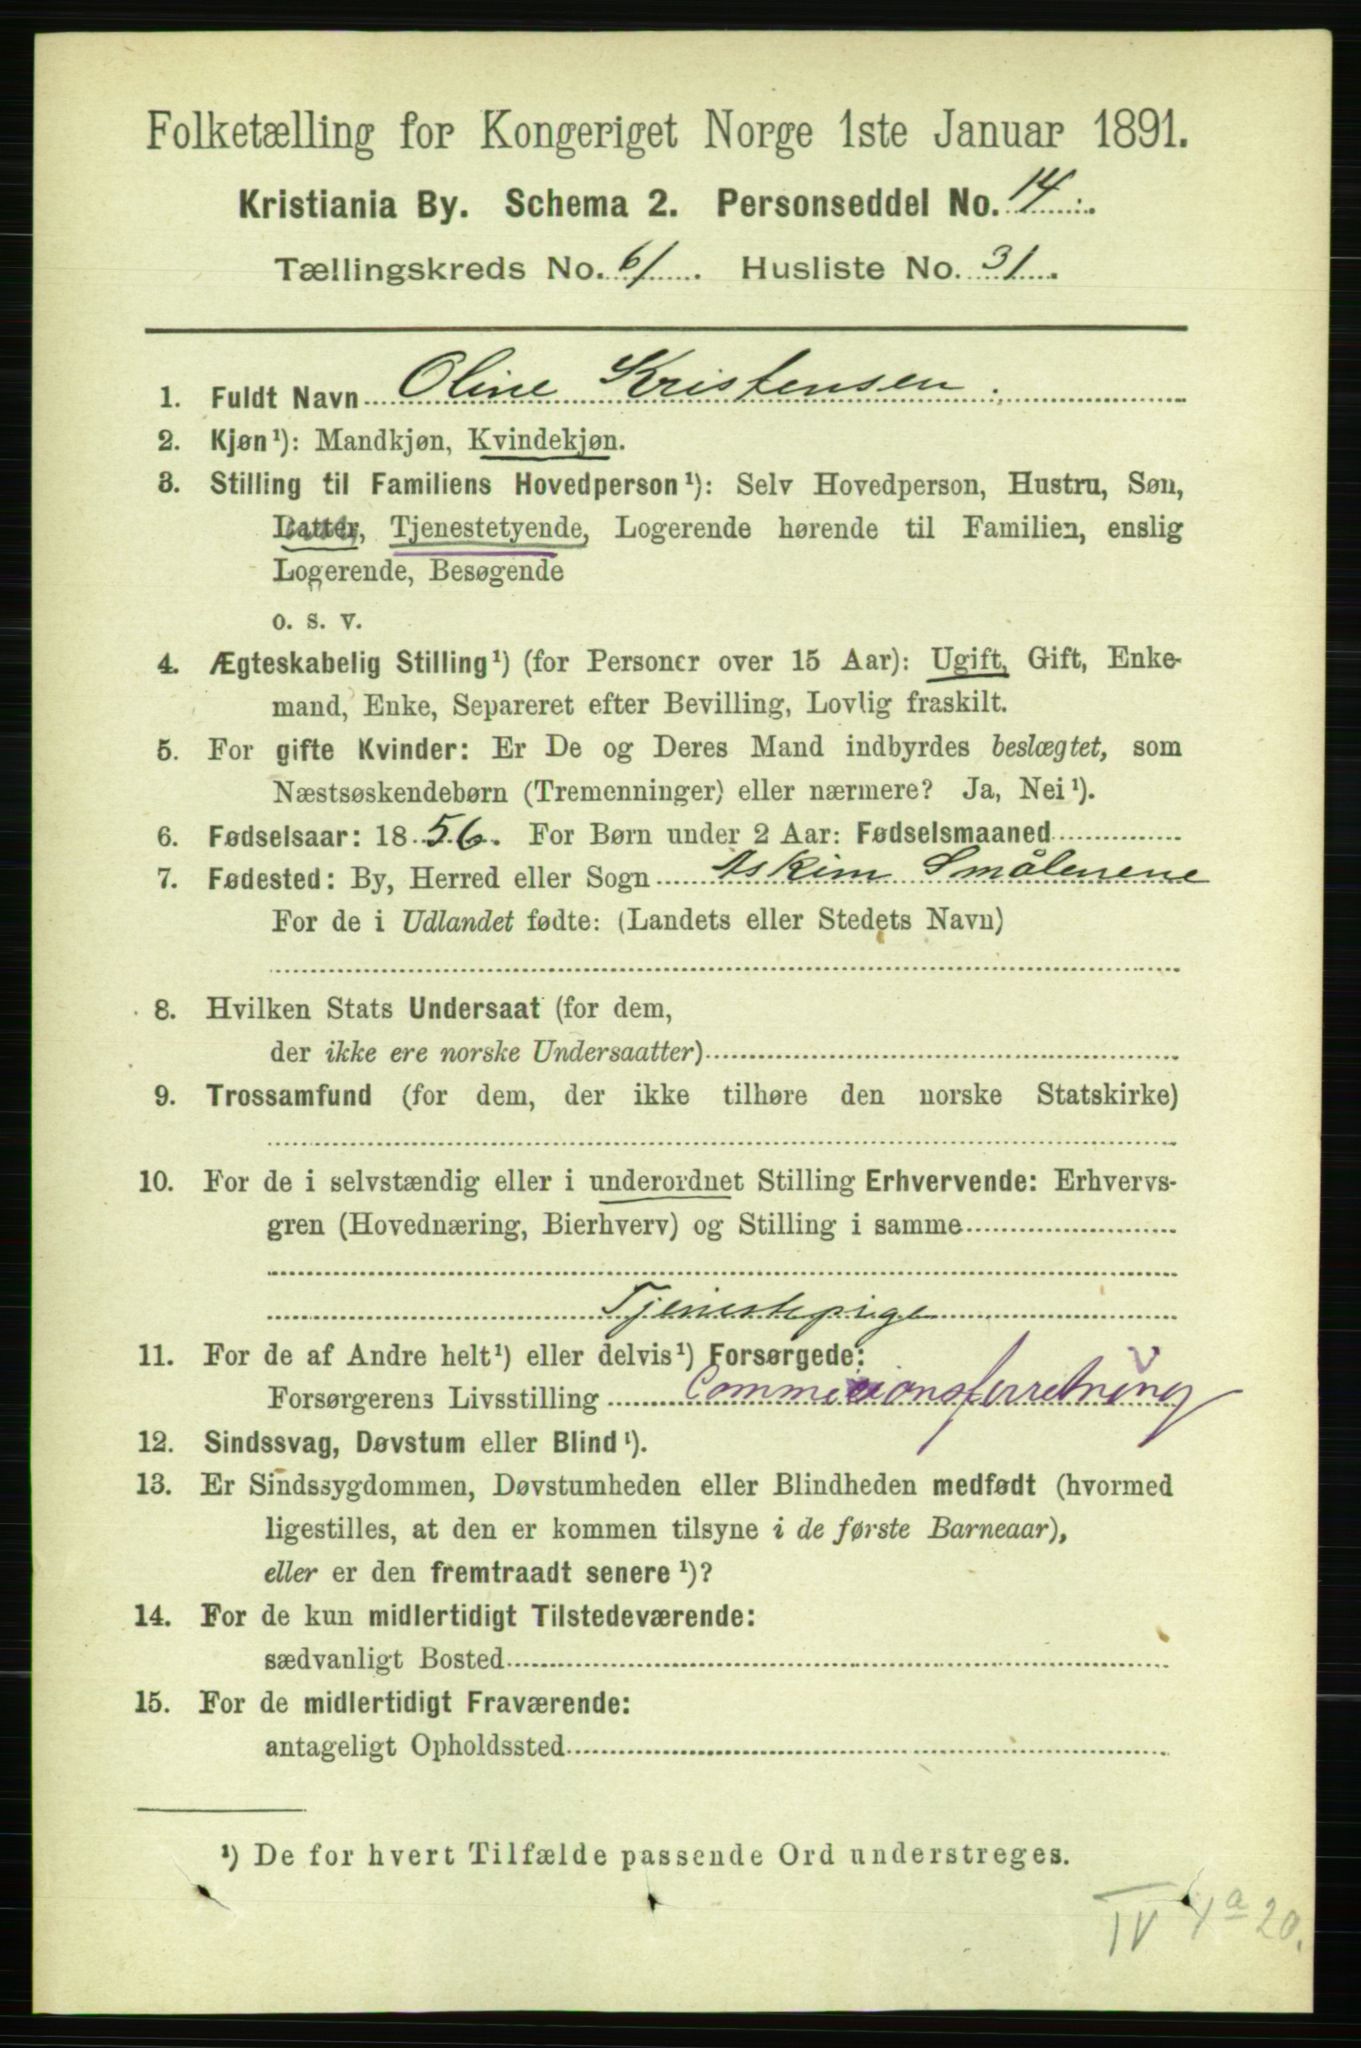 Folketælling for Kongeriget Norge 1ste Januar 1891.
Kristiania By. Schema 2. Personseddel No. 14.
Tællingskreds No. 61. Husliste No. 31.
1. Fuldt Navn Oline Kristensen.
2. Kjøn¹): Mandkjøn, Kvindekjøn.
3. Stilling til Familiens Hovedperson¹): Selv Hovedperson, Hustru, Søn,
Datter, Tjenestetyende, Logerende hørende til Familien, enslig
Logerende, Besøgende
o. s. v.
4. Ægteskabelig Stilling¹) (for Personer over 15 Aar): Ugift, Gift, Enke-
mand, Enke, Separeret efter Bevilling, Lovlig fraskilt.
5. For gifte Kvinder: Er De og Deres Mand indbyrdes beslægtet, som
Næstsøskendebørn (Tremenninger) eller nærmere? Ja, Nei¹).
6. Fødselsaar: 1856. For Børn under 2 Aar: Fødselsmaaned
7. Fødested: By, Herred eller Sogn Askim Smålenene
For de i Udlandet fødte: (Landets eller Stedets Navn)
8. Hvilken Stats Undersaat (for dem,
der ikke ere norske Undersaatter)
9. Trossamfund (for dem, der ikke tilhøre den norske Statskirke)
10. For de i selvstændig eller i underordnet Stilling Erhvervende: Erhvervs-
gren (Hovednæring, Bierhverv) og Stilling i samme
Tjenestepige
11. For de af Andre helt¹) eller delvis¹) Forsørgede:
Forsørgerens Livsstilling Commisionsforretning
12. Sindssvag, Døvstum eller Blind¹).
13. Er Sindssygdommen, Døvstumheden eller Blindheden medfødt (hvormed
ligestilles, at den er kommen tilsyne i de første Barneaar),
eller er den fremtraadt senere¹)?
14. For de kun midlertidigt Tilstedeværende:
sædvanligt Bosted
15. For de midlertidigt Fraværende:
antageligt Opholdssted
¹) De for hvert Tilfælde passende Ord understreges.
IV 4a 20.